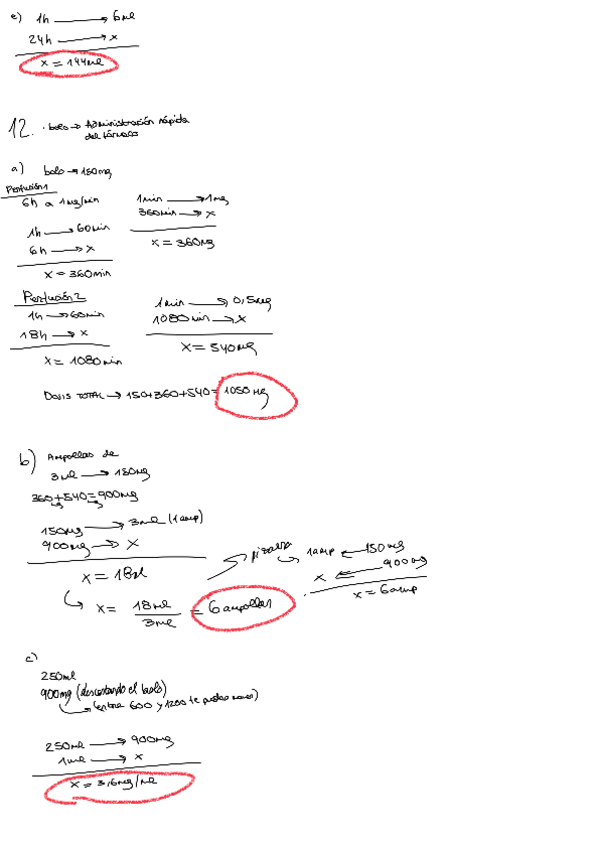 e) 1h → 6ml
24h → x
x = 144ml
12. • bolo → Administración rápida
del fármaco
a) bolo → 150mg
Perfusión 1
6h a 1mg/min
1h → 60min
6h → x
x = 360min
1min → 1mg
360min → x
x = 360mg
Perfusión 2
1h → 60min
18h → x
x = 1080min
1min → 0,5mg
1080min → x
x = 540mg
Dosis TOTAL → 150+360+540= 1050mg
b) Ampollas de
3ml → 150mg
360+540=900mg
150mg → 3ml (1amp)
900mg → x
x = 18ml
x = 18ml / 3ml = 6 ampollas
1amp ← 150mg
x ← 900mg
x = 6amp
c)
250ml
900mg (descontando el bolo)
(entre 600 y 1200 te puedes mover)
250ml → 900mg
1ml → x
x = 3,6mg/ml